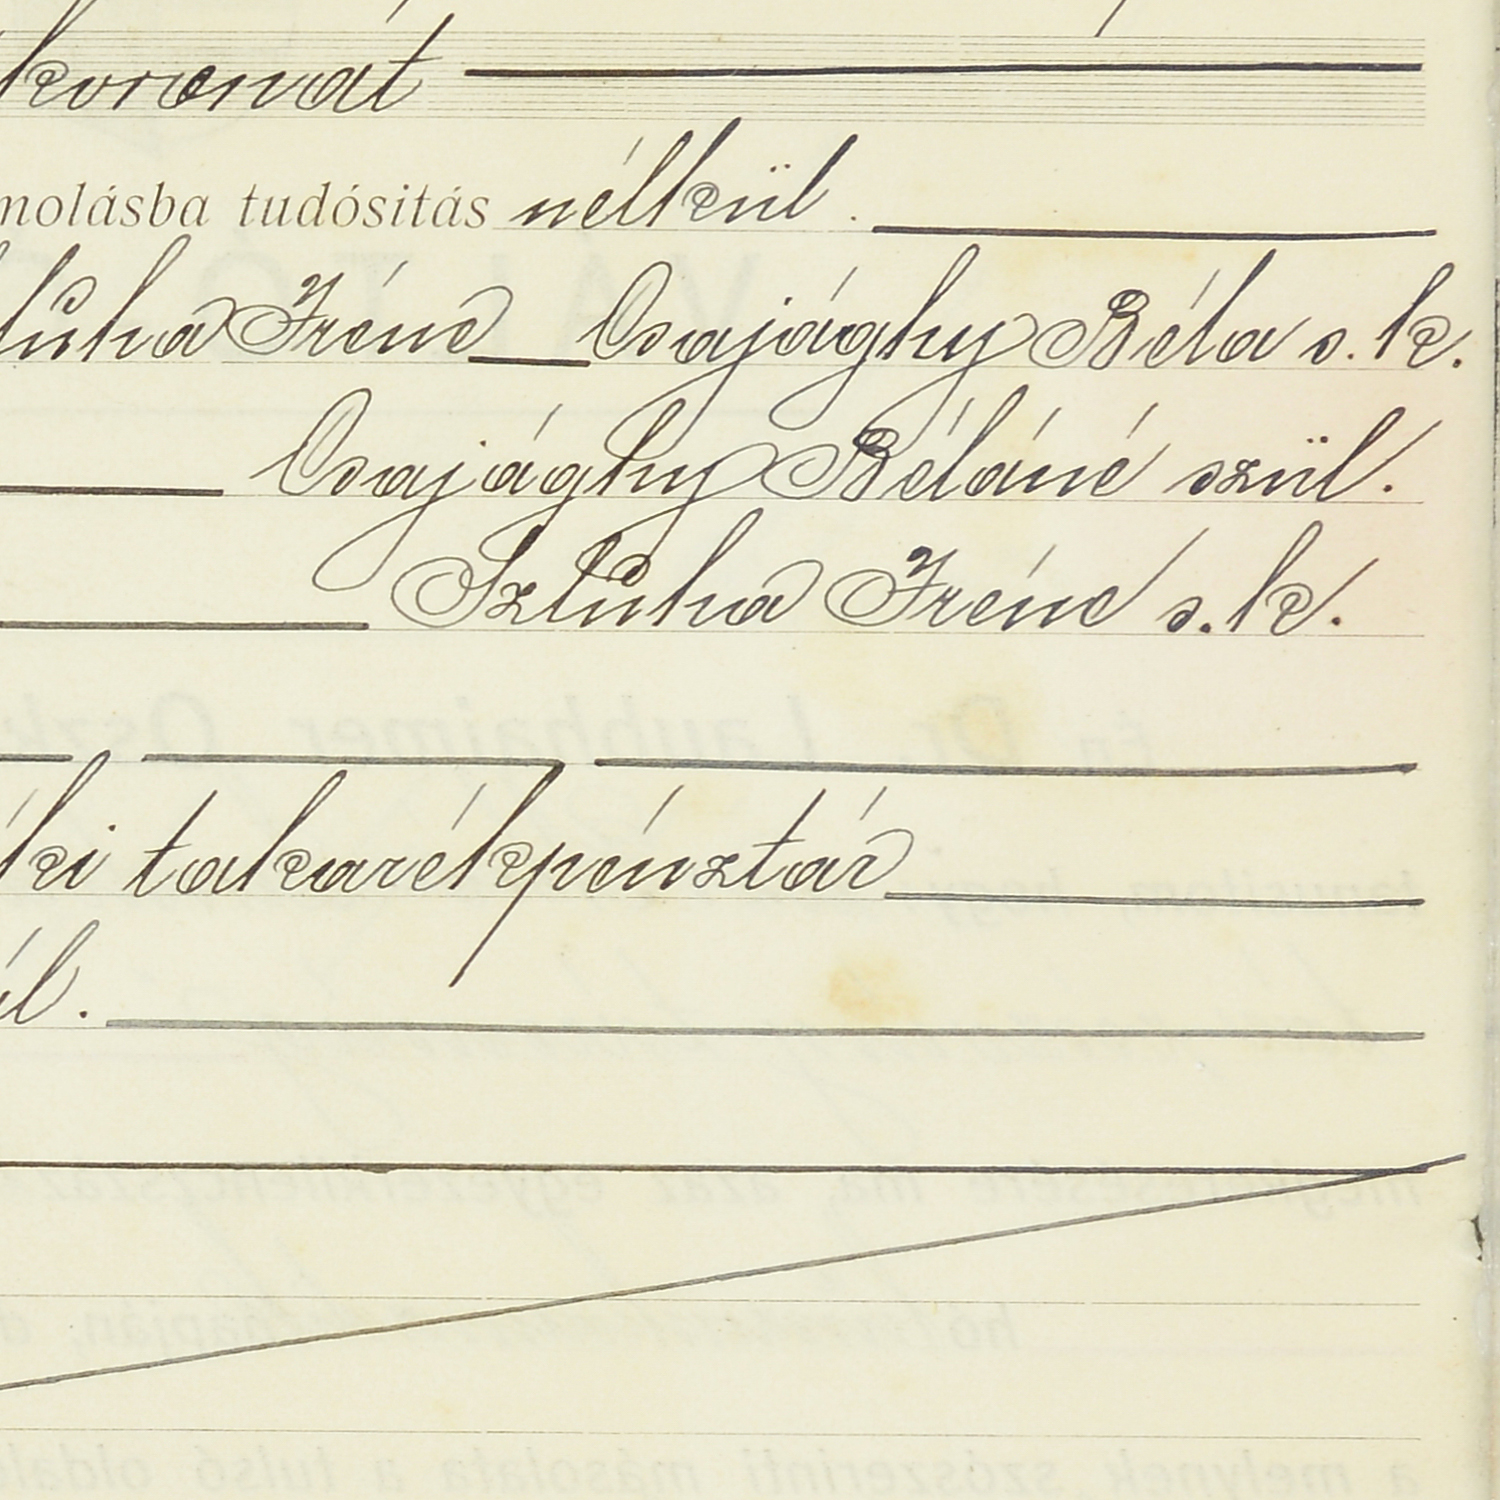 koronát
molásba tudósitás nélkül.
tuha Iréne Csajághy Béla s. k.
Csajághy Béláné szül.
Sztuha Iréne s. k.
ki takarékpénztár
ól.